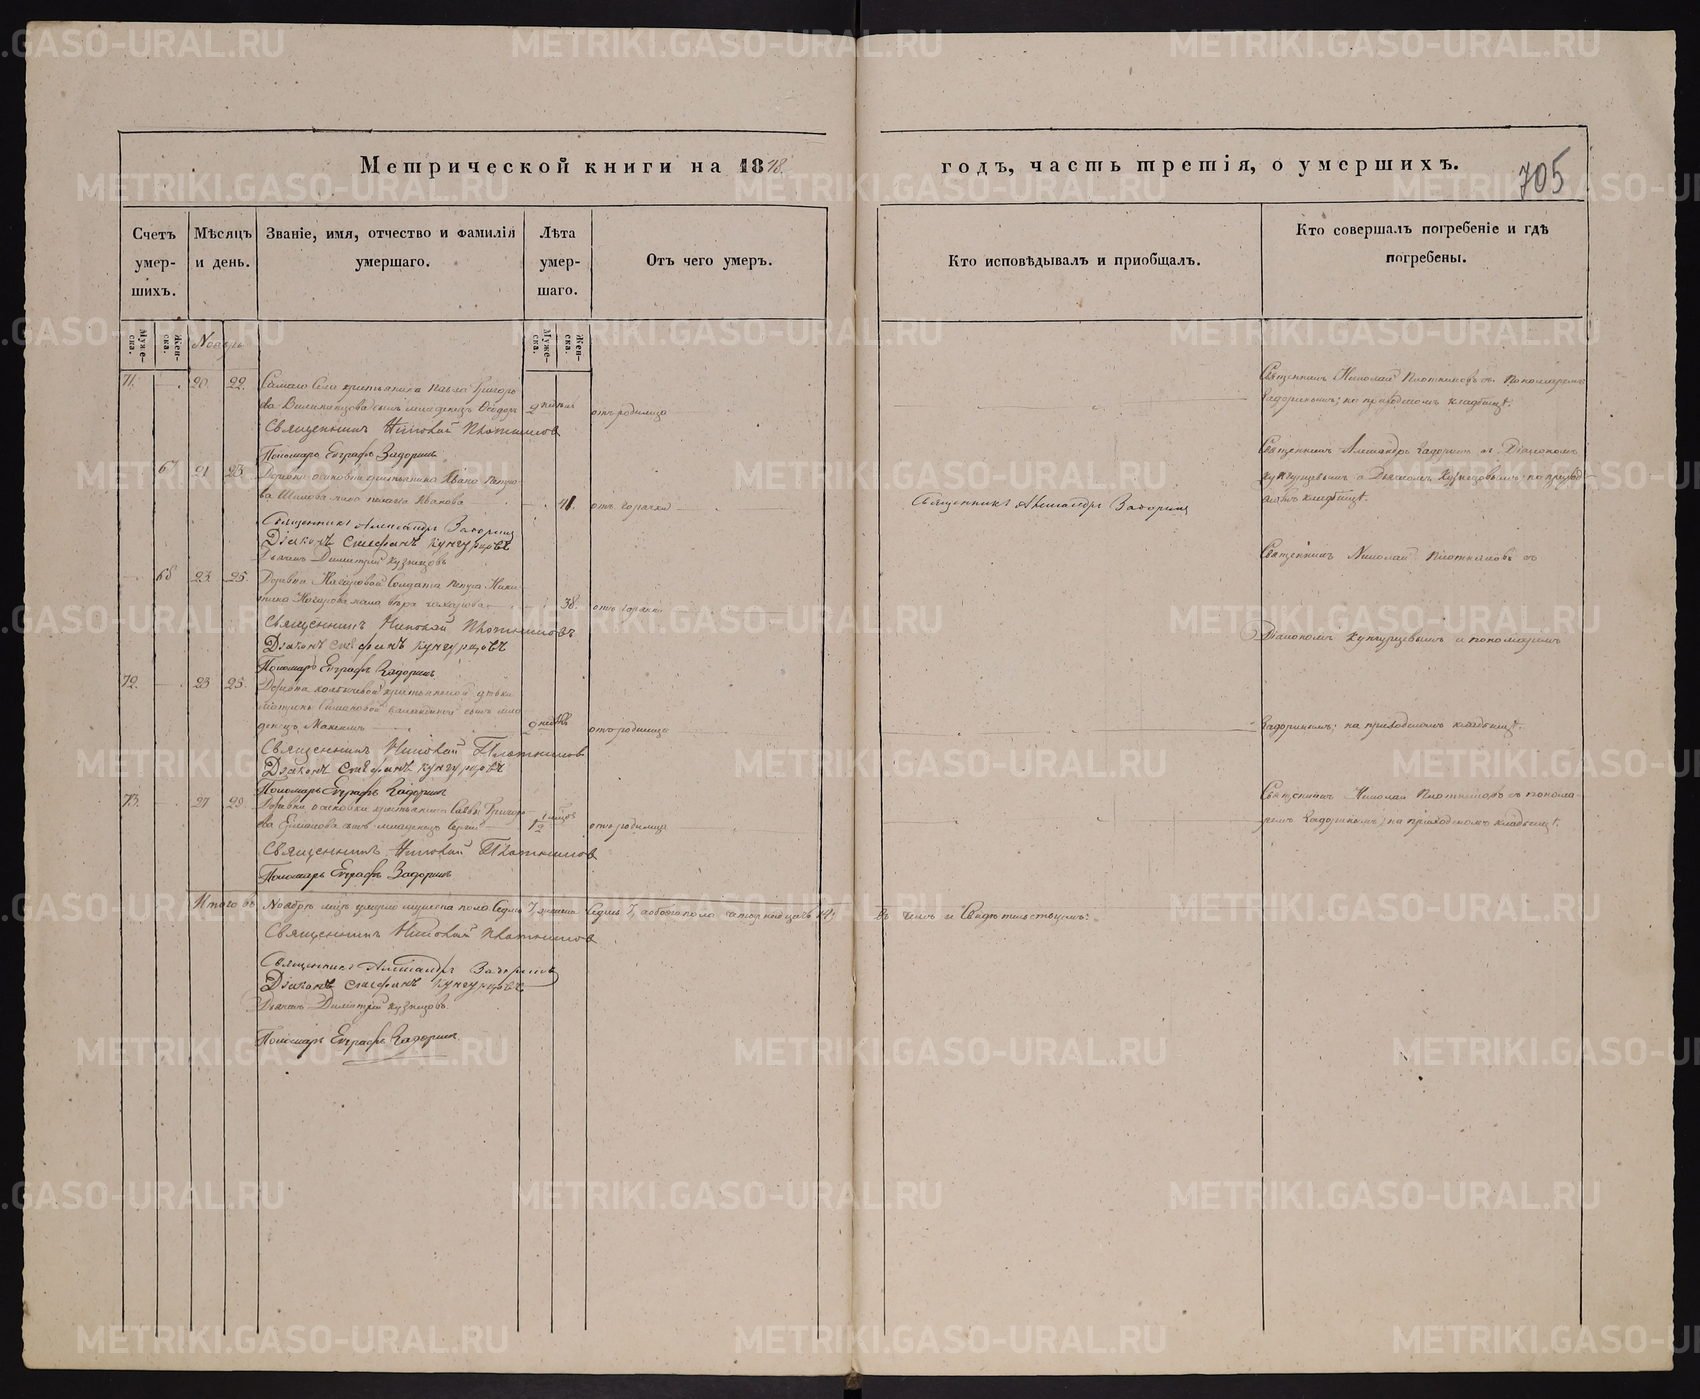 Метрической книги на 1848.
годъ, часть третія, о умершихъ.
705
Счетъ умер-
шихъ.
Мѣсяцъ
и день.
Званіе, имя, отчество и фамилія
умершаго.
Лѣта
умер-
шаго.
Отъ чего умеръ.
Кто исповѣдывалъ и пріобщалъ.
Кто совершалъ погребеніе и гдѣ
погребены.
Муже-
ска.
Жен-
ска.
Муже-
ска.
Жен-
ска.
Ноябрь
71. 20. 22. Самаго Села крестьянина Павла Григорь
ева сынъ младенецъ Ѳеодоръ 2 недѣль отъ родимца
Священникъ Николай Плотниковъ
Пономарь Евграфъ Задоринъ
Священникъ Николай Плотниковъ съ Пономаремъ
Задоринымъ; на приходскомъ кладбищѣ.
67 21 23 Деревни крестьянина Ивана Петро-
ва жена Иванова 41. отъ горячки
Священникъ Александръ Задоринъ
Діаконъ Стефанъ Кунгурцовъ
Дьячекъ Димитрій Кузнецовъ
Священникъ Александръ Задоринъ
Священникъ Александръ Задоринъ съ Діакономъ
Кунгурцевымъ и Дьячкомъ Кузнецовымъ; на приход-
скомъ кладбищѣ.
68 23 25. Деревни Солдата Петра Ники-
тина жена Вѣра 38. отъ горячки
Священникъ Николай Плотниковъ
Діаконъ Стефанъ Кунгурцовъ
Пономарь Евграфъ Задоринъ
Священникъ Николай Плотниковъ съ
Діакономъ Кунгурцевымъ и пономаремъ
72. 23 25. Деревни крестьянской дѣвки
сынъ мла-
денецъ Максимъ 2 недѣль отъ родимца
Священникъ Николай Плотниковъ
Діаконъ Стефанъ Кунгурцовъ
Пономарь Евграфъ Задоринъ
Задоринымъ; на приходскомъ кладбищѣ.
73. 27 29 Деревни крестьянина Саввы Григорь-
ева сынъ младенецъ Сергій отъ родимца
Священникъ Николай Плотниковъ
Пономарь Евграфъ Задоринъ
Священникъ Николай Плотниковъ съ понома-
ремъ Задоринымъ; на приходскомъ кладбищѣ.
Итого въ Ноябрѣ мѣц умерло мужеска пола Седмь 7, женска Седмь 7, а обоего пола четырнадцать 14;
въ чемъ и Свидѣтельствуемъ:
Священникъ Николай Плотниковъ
Священникъ Александръ Задоринъ
Діаконъ Стефанъ Кунгурцовъ
Дьячекъ Димитрій Кузнецовъ
Пономарь Евграфъ Задоринъ
METRIKI.GASO-URAL.RU